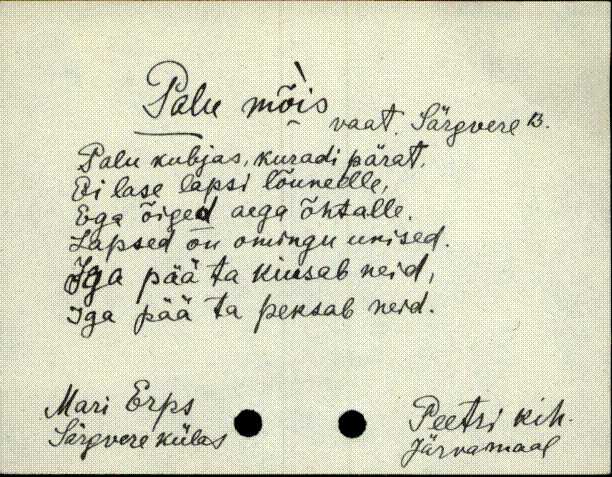 Palu mõis
vaat. Särgvere B.
Palu kubjas, kuradi pärat,
Ei lase lapsi lõunelle,
Ega õiged aega õhtalle.
Lapsed on omingu unised.
Iga pää ta kiusab neid,
Iga pää ta peksab neid.
Mari Erps
Särgvere külas
Peetri kih.
Järvamaal